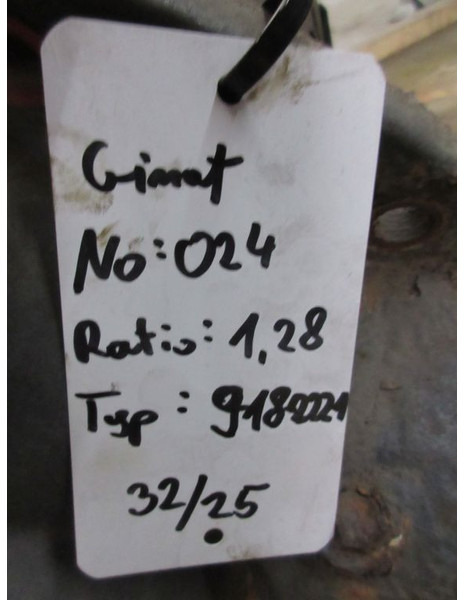 Gimat
No: 024
Ratio: 1,28
Typ: 9182221
32/25